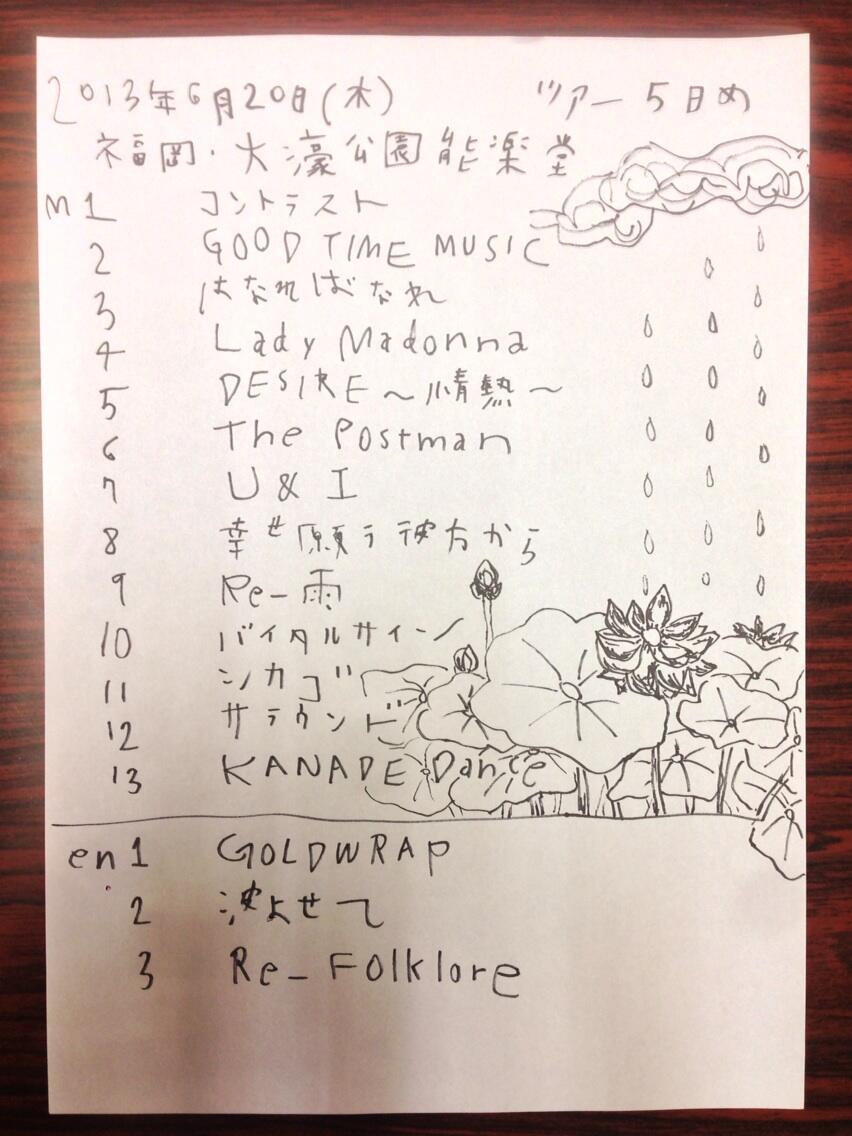 2013年6月20日(木) ツアー5日め
福岡・大濠公園能楽堂
m1 コントラスト
2 GOOD TIME MUSIC
3 はなればなれ
4 Lady Madonna
5 DESIRE〜情熱〜
6 The Postman
7 U & I
8 幸せ願う彼方から
9 Re-雨
10 バイタルサイン
11 シカゴ
12 サラウンド
13 KANADE Dance
en1 GOLDWRAP
2 波よせて
3 Re-Folklore